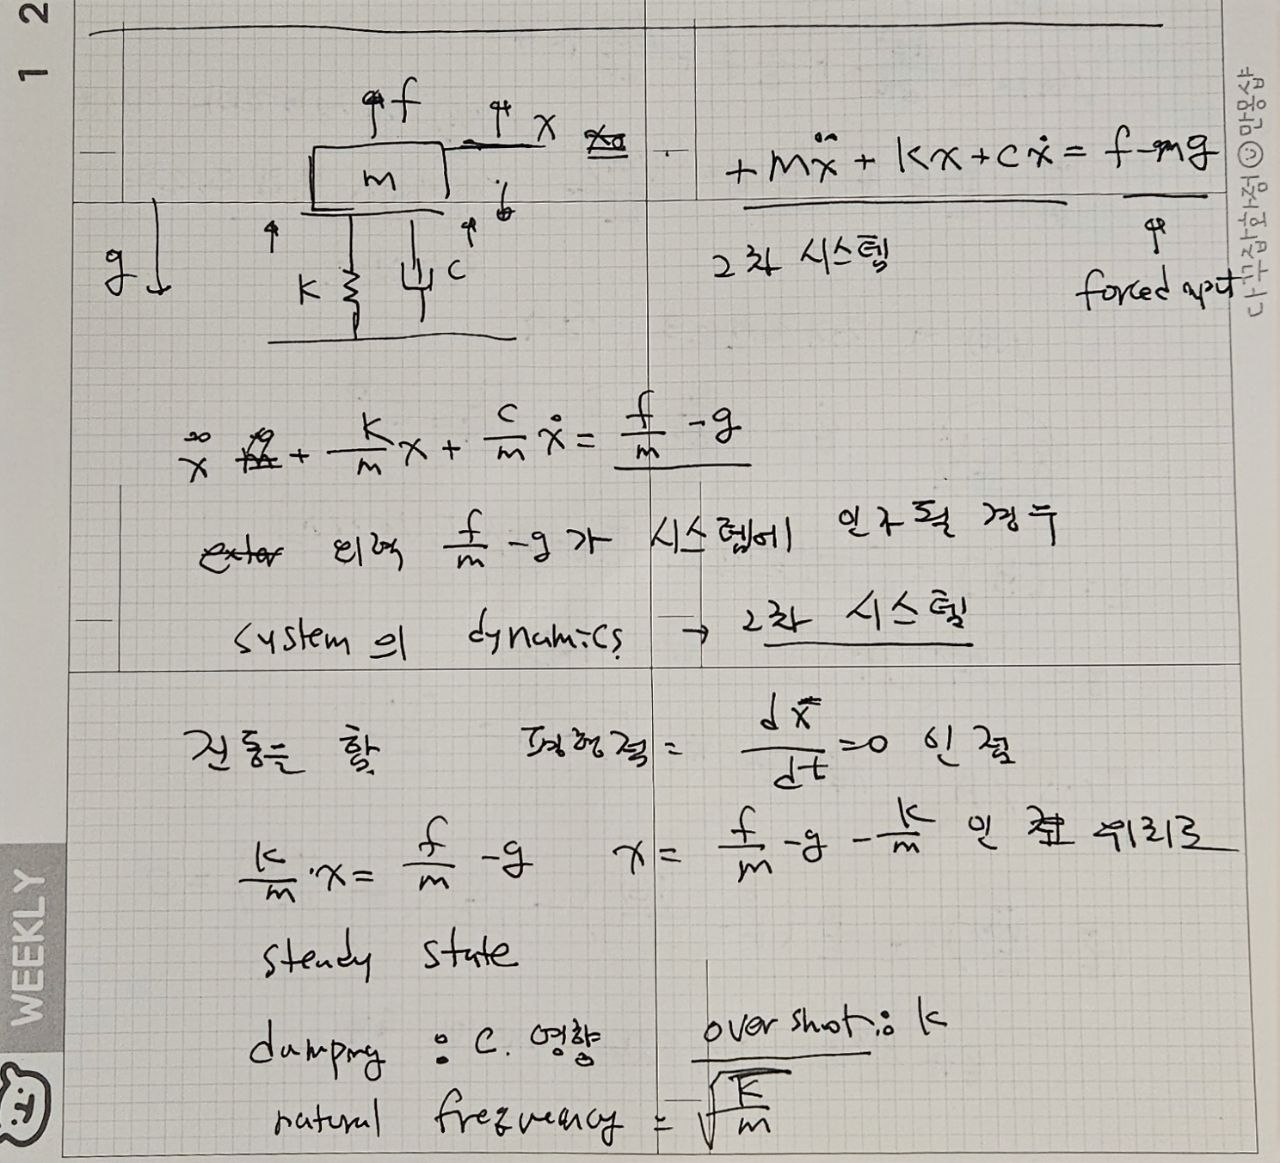 1 2
f
x
m
g
k
c
+mẍ + kx + cẋ = f - mg
2차 시스템
forced input
ẍ + k/m x + c/m ẋ = f/m - g
exter 외력 f/m - g 가 시스템에 인가될 경우
system의 dynamics → 2차 시스템
진동을 함 평형점 = dx/dt = 0 인 점
k/m · x = f/m - g x = f/m - g - k/m 인 위치로
steady state
dampmg : c. 영향 over shot : k
natural frequency = √k/m
WEEKLY